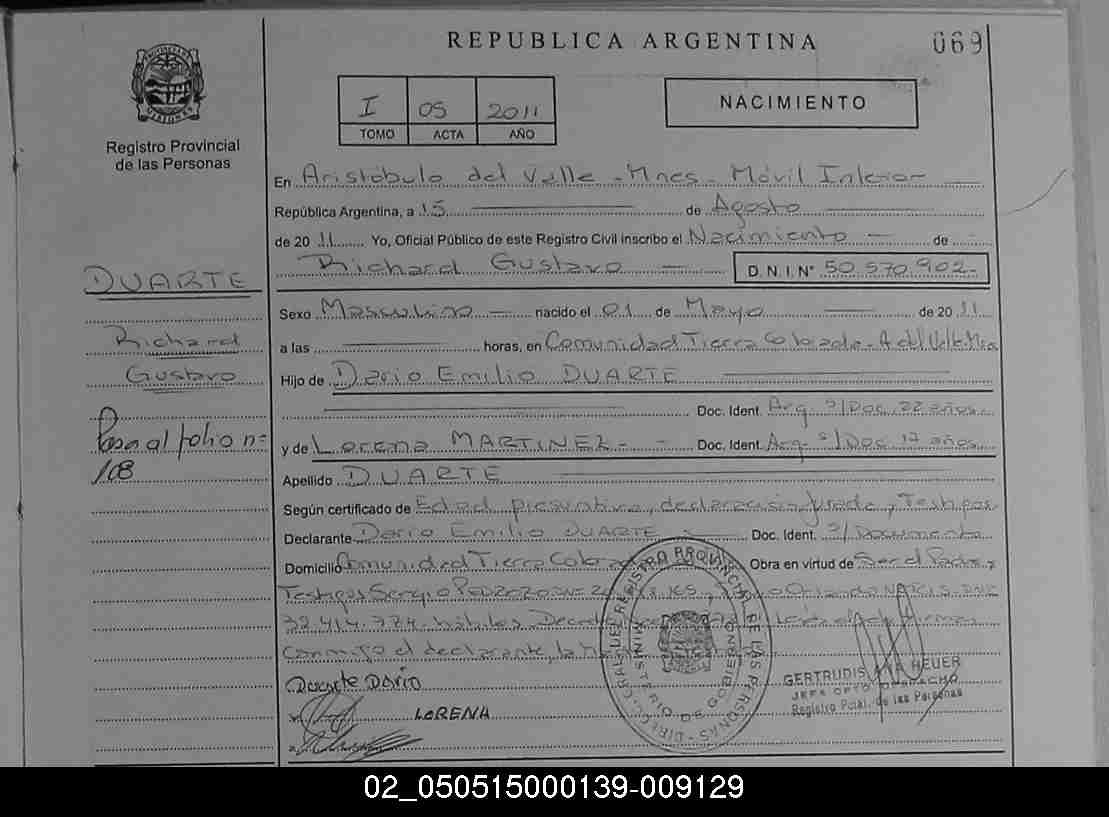 REPUBLICA ARGENTINA
069
PROVINCIA DE MISIONES
Registro Provincial
de las Personas
I 05 2011
TOMO ACTA AÑO
NACIMIENTO
En Aristóbulo del Valle - Mnes - Móvil Interior
República Argentina, a 15 de Agosto
de 20 11 Yo, Oficial Público de este Registro Civil inscribo el Nacimiento de
Richard Gustavo D.N.I.N° 50.570.902-
DUARTE
Richard
Gustavo
Pasa al folio n=
108
Sexo Masculino nacido el 01 de Mayo de 20 11
a las horas, en Comunidad Tierra Colorada - A del Valle Mnes
Hijo de Dario Emilio DUARTE
Doc. Ident. Arg S/Doc 22 años
y de Lorena MARTINEZ - - Doc. Ident. Arg- S/Doc 17 años
Apellido DUARTE
Según certificado de Edad presuntiva, declaración Jurada y Testigos
Declarante Dario Emilio DUARTE Doc. Ident. S/Documento
Domicilio Comunidad Tierra Colorada Obra en virtud de Ser el Padre y
Testigos Sergio
32.414.774 hábiles Leída el acta firman
conmigo el declarante, la
Duarte Dario
LORENA
DIREC. GRAL. DEL REGISTRO PROVINCIAL DE LAS PERSONAS
MINISTERIO DE GOBIERNO
GERTRUDIS ANA HEUER
JEFA DPTO DESPACHO
Registro Pcial. de las Personas
02_050515000139-009129